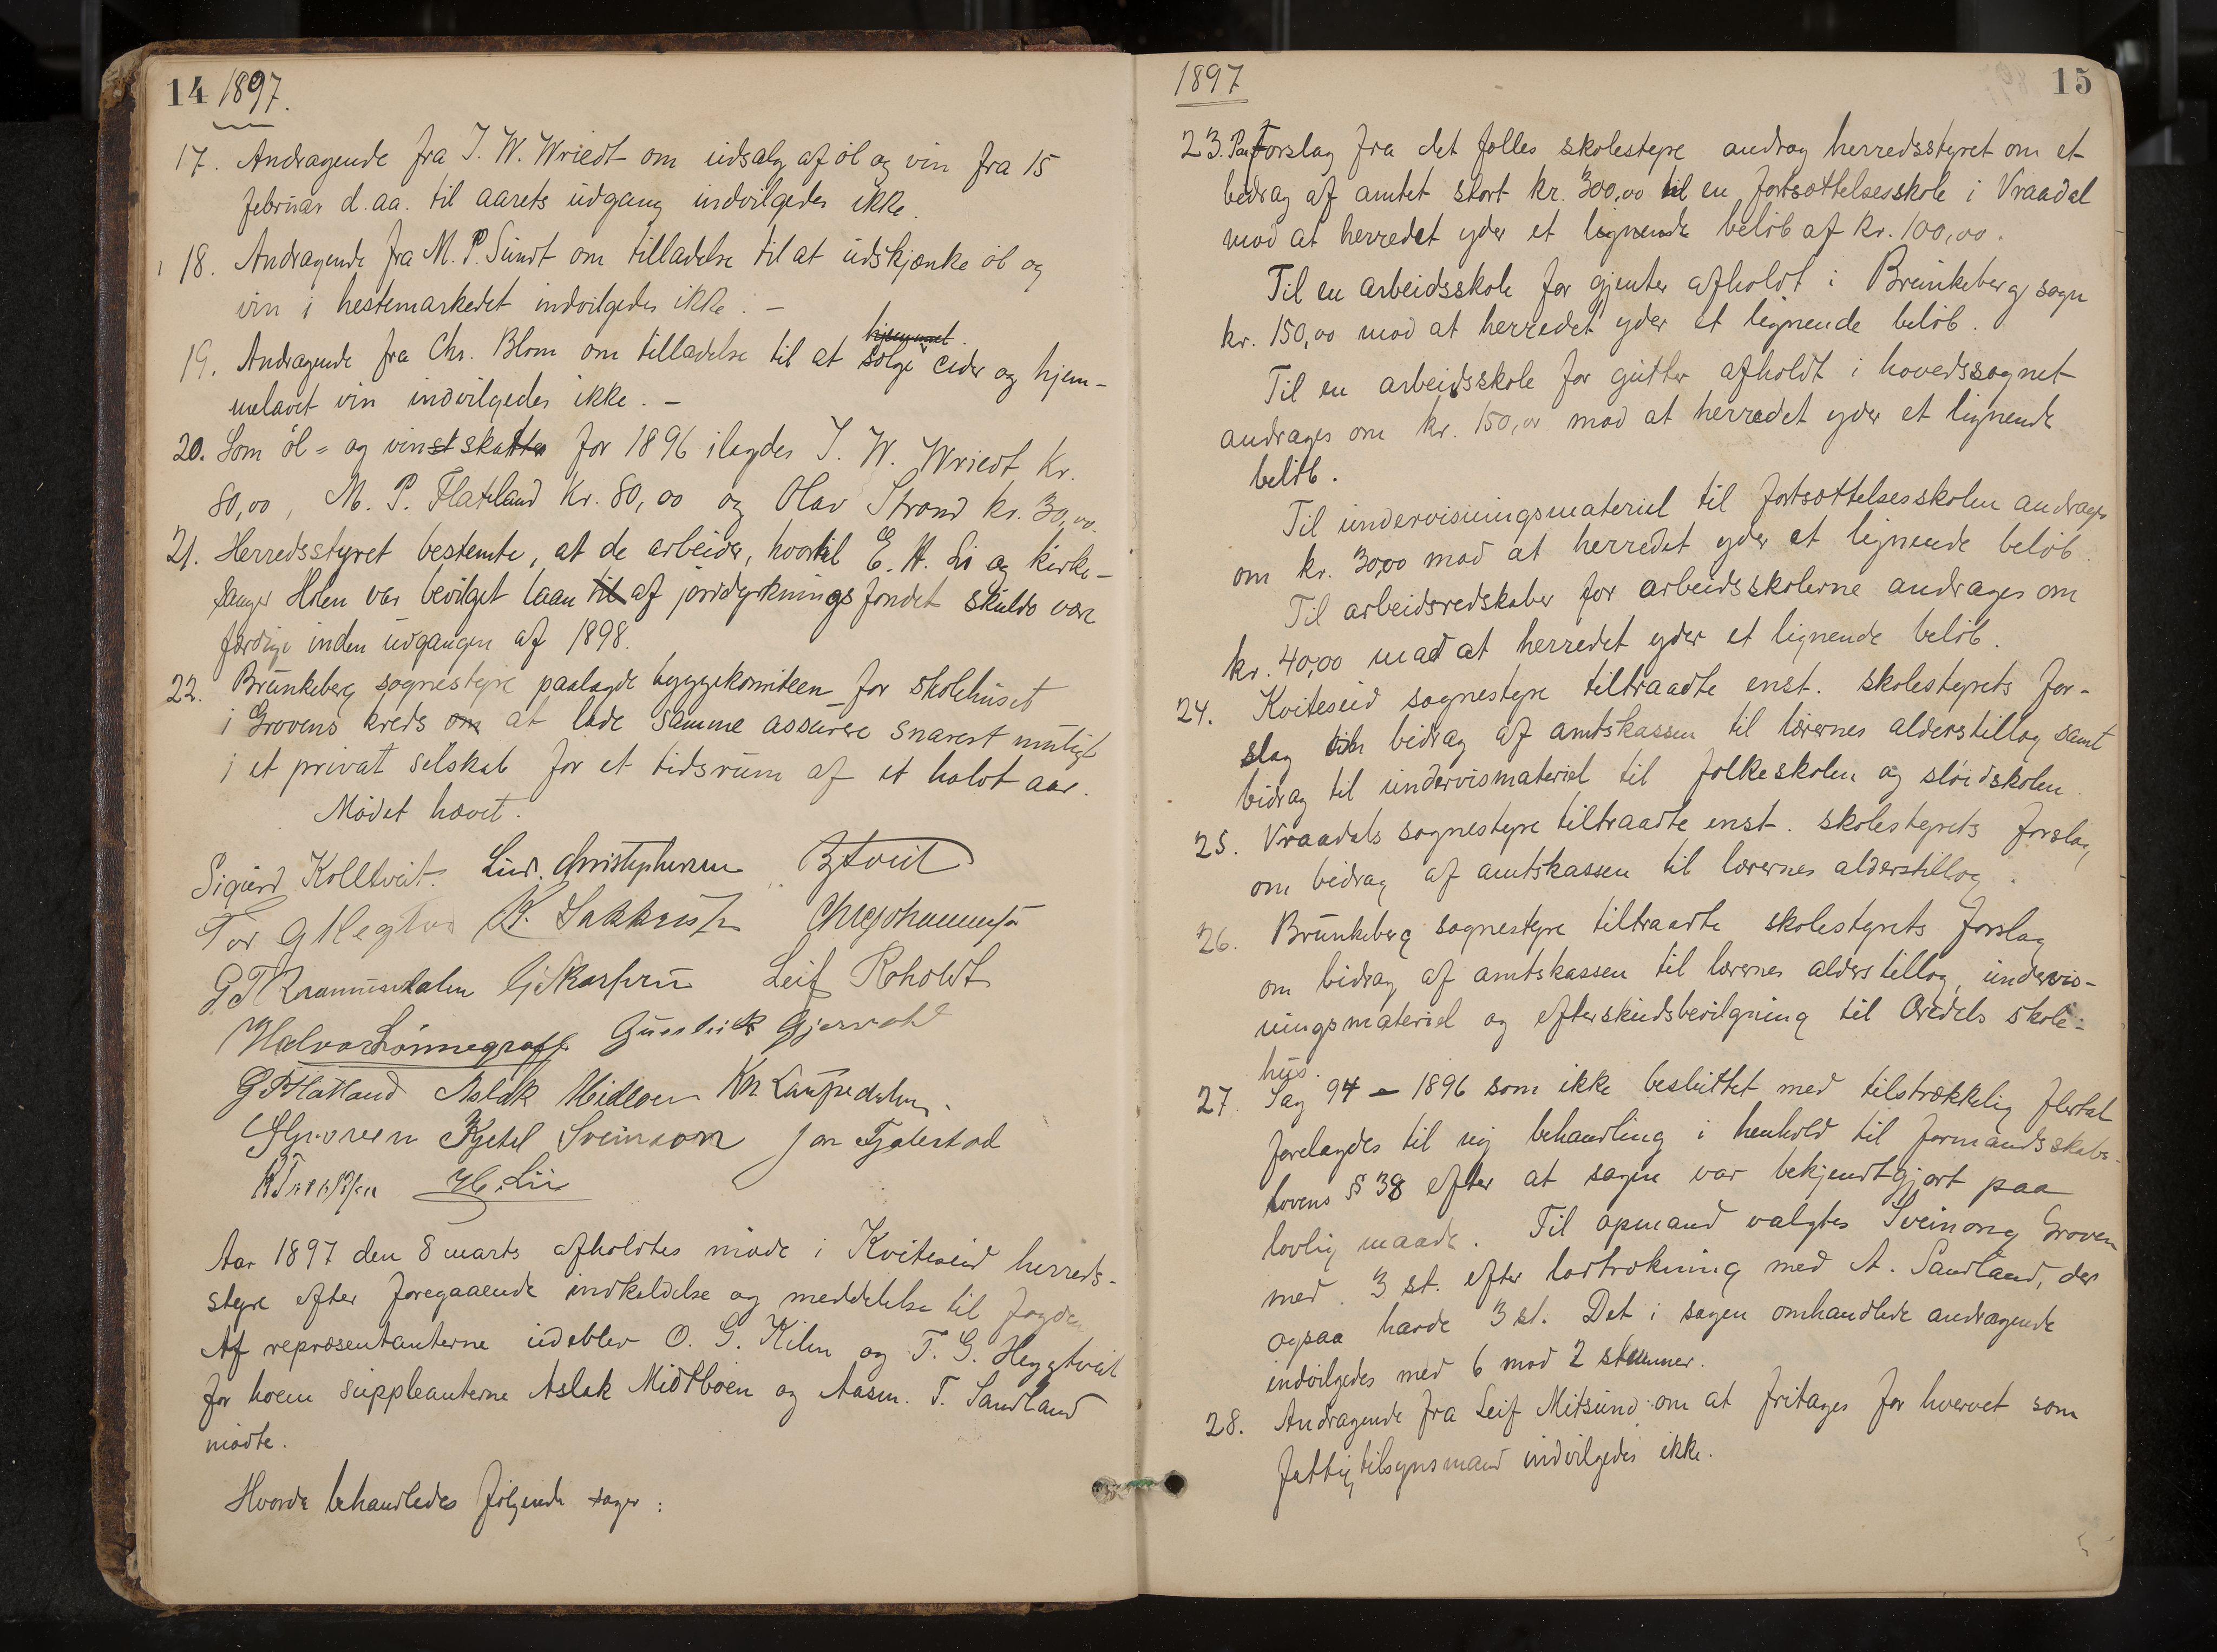 14 1897.
17. Andragende fra J. W. Wriedt om udsalg af öl og vin fra 15
februar d. aa. til aarets udgang indvilgedes ikke.
18. Andragende fra M. P. Sundt om tilladelse til at udskjænke öl og
vin i hestemarkedet indvilgedes ikke. -
hjemmel.
19. Andragende fra Chr. Blom om tilladelse til at sölge cider og hjem-
melavet vin indvilgedes ikke. -
20. Som öl= og vinst skatter for 1896 ilagdes J. W. Wriedt Kr.
80,00, M. P. Flatland Kr. 80,00 og Olav Strand kr. 30,00.
21. Herredsstyret bestemte, at de arbeider, hvortil E. H. Li og kirke-
sanger Holen var bevilget laan til af jorddyrkningsfondet skulde være
færdige inden udgangen af 1898.
22. Brunkeberg sognestyre paalagde byggekomiteen for skolehuset
i Grovens kreds om at lade samme assurere snarest muligt
i et privat selskab for et tidsrum af et halvt aar.
Mödet hævet.
Sigurd Kolltveit. Lud. Christophersen
Tor G
Leif Roholdt
Halvor Lönnegraff Gunleik Gjervold
G P Flatland Aslak Kn.
Kjetel Sveinson Jon
H. Lii
Aar 1897 den 8 marts afholdtes möde i Kviteseid herreds-
styre efter foregaaende indkaldelse og meddelelse til fogden
Af repræsentanterne udeblev O. G. Kilen og T. G. Heggtveit
for hvem suppleanterne Aslak Midtböen og Aasm. T. Sandland
mödte.
Hvorda behandledes fölgende sager:
1897 15
23. Paa Forslag fra det fælles skolestyre androg herredsstyret om et
bidrag af amtet stort kr. 300,00 til en fortsættelsesskole i Vraadal
mod at herredet yder et lignende belöb af kr. 100,00.
Til en arbeidsskole for gjenter afholdt i Brunkeberg sogn
kr. 150,00 mod at herredet yder et lignende belöb.
Til en arbeidsskole for gutter afholdt i hovedssognet
andrages om kr. 150,00 mod at herredet yder et lignende
belöb.
Til undervisningsmateriel til fortsættelsesskolen andrages
om kr. 30,00 mod at herredet yder et lignende belöb.
Til arbeidsredskaber for arbeidsskolerne andrages om
kr. 40,00 mod at herredet yder et lignende belöb.
24. Kviteseid sognestyre tiltraadte enst. skolestyrets for-
slag om bidrag af amtskassen til lærernes alderstillæg samt
bidrag til undervismateriel til folkeskolen og slöidskolen.
25. Vraadals sognestyre tiltraadte enst. skolestyrets forslag
om bidrag af amtskassen til lærernes alderstillæg.
26. Brunkeberg sognestyre tiltraadte skolestyrets forslag
om bidrag af amtskassen til lærernes alderstillæg, undervis-
ningsmateriel og efterskudsbevilgning til skole-
hus.
27. Sag 94 - 1896 som ikke besluttet med tilstrækkelig flertal
forelagdes til ny behandling i henhold til formandsskabs-
lovens § 38 efter at sagen var bekjendtgjort paa
lovlig maade. Til opmand valgtes Sveinung Groven
med 3 st. efter lodtrækning med A. Sandland, der
ogsaa havde 3 st. Det i sagen omhandlede andragende
indvilgedes med 6 mod 2 stemmer.
28. Andragende fra Leif Mitsund om at fritages for hvervet som
fattigtilsynsmand indvilgedes ikke.